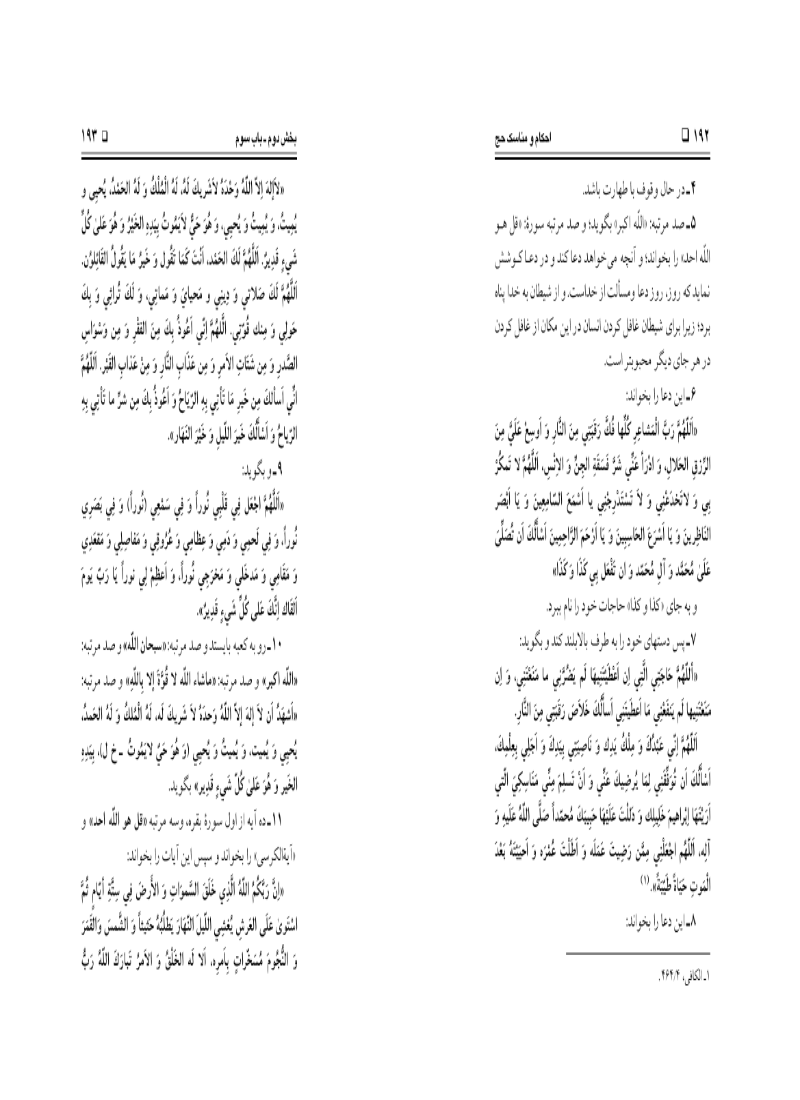 ۱۹۲ ❑ احکام و مناسک حج
۴ـ در حال وقوف با طهارت باشد.
۵ـ صد مرتبه: «اللّه اکبر» بگوید؛ و صد مرتبه سورۀ: «قل هـو
اللّه احد» را بخواند؛ و آنچه می‌خواهد دعا کند و در دعـا کـوشش
نماید که روز، روز دعا ومسألت از خداست. و از شیطان به خدا پناه
برد؛ زیرا برای شیطان غافل کردن انسان در این مکان از غافل کردن
در هر جای دیگر محبوبتر است.
۶ـ این دعا را بخواند:
«اَللّهُمَّ رَبَّ الْمَشاعِرِ کُلِّها فُكَّ رَقَبَتِي مِنَ النَّارِ وَ أَوسِعْ عَلَيَّ مِنَ
الرِّزقِ الحَلالِ، وَ ادْرَأ عَنِّي شَرَّ فَسَقَةِ الجِنِّ وَ الاِنْسِ، اَللّهُمَّ لا تَمكُرْ
بِي وَ لاتَخدَعْنِي وَ لاَ تَسْتَدْرِجْنِي يا أَسْمَعَ السَّامِعِينَ وَ يَا أَبْصَرَ
النَّاظِرِينَ وَ يَا أَسْرَعَ الحَاسِبِينَ وَ يَا أَرْحَمَ الرَّاحِمِينَ أَسْأَلُكَ أَن تُصَلِّيَ
عَلَىٰ مُحَمَّد وَ آلِ مُحَمَّد وَ ان تَفْعَل بِي كَذَا وَ كَذَا»
و به جای «کذا و کذا» حاجات خود را نام ببرد.
۷ـ پس دستهای خود را به طرف بالابلند کند و بگوید:
«اَللّهُمَّ حَاجَتِي الَّتِي اِن أَعْطَيْتَنِيهَا لَم يَضُرَّنِي ما مَنَعْتَنِي، وَ اِن
مَنَعْتَنِيها لَم يَنفَعْنِي مَا أَعطَيتَنِي أَسأَلُكَ خَلاَصَ رَقَبَتِي مِنَ النَّارِ.
اَللّهُمَّ إِنِّي عَبْدُكَ وَ مِلْكُ يَدِك وَ نَاصِيَتِي بِيَدِكَ وَ أَجَلِي بِعِلْمِكَ،
أَسْأَلُكَ أَن تُوَفِّقَنِي لِمَا يُرضِيكَ عَنِّي وَ أَنْ تَسلِمَ مِنِّي مَنَاسِكِيَ الَّتي
أرَيْتَهَا إبْراهِيمَ خَلِيلِكَ وَ دَلَلْتَ عَلَيْهَا حَبِيبَكَ مُحمّداً صَلَّى اللّهُ عَلَيهِ وَ
آلِه، اَللّهُم اجعَلْنِي مِمَّن رَضِيتَ عَمَلَه وَ أَطَلْتَ عُمْرَه وَ أحيَيتَهُ بَعْدَ
الْمَوتِ حَيَاةً طَيِّبَةً».(۱)
۸ـ این دعا را بخواند:
۱ـ الکافی، ۴۶۴/۴.
بخش دوم ـ باب سوم ❑ ۱۹۳
«لاَاِلهَ اِلاّ اللّهُ وَحْدَهُ لاَشَرِيكَ لَهُ، لَهُ الْمُلْكُ وَ لَهُ الحَمدُ، يُحيِى وَ
يُمِيتُ، وَ يُمِيتُ وَ يُحيِي، وَ هُوَ حَيٌّ لاَيَمُوتُ بِيَدِهِ الخَيْرُ وَ هُوَ عَلَىٰ كُلِّ
شَيءٍ قَدِيرٌ. اَللّهُمَّ لَكَ الحَمْد، أَنْتَ كَمَا تَقُول وَ خَيرُ مَا يَقُولُ القَائِلُون.
اَللّهُمَّ لَكَ صَلاتي وَ دِيني و مَحيايَ وَ مَمَاتي، وَ لَكَ تُراثي وَ بِكَ
حَولِي وَ مِنك قُوَّتِي. اللّهُمَّ إنّي أعُوذُ بِكَ مِنَ الفَقْرِ وَ مِن وَسْوَاسِ
الصَّدرِ وَ مِن شَتَاتِ الاَمرِ وَ مِن عَذَابِ النَّارِ وَ مِنْ عَذابِ القَبْر. اَللّهُمَّ
انِّي أسألك مِن خَيرِ مَا تَأتِي بِهِ الرِّيَاحُ وَ أعُوذُ بِكَ مِن شَرِّ ما تَأتِي بِهِ
الرِّياحُ وَ أسْأَلُكَ خَيرَ اللَّيلِ وَ خَيْرَ النَّهَارِ».
۹ـ و بگوید:
«اَللّهُمَّ اجْعَل فِي قَلْبِي نُوراً وَ فِي سَمْعِي (نُوراً) وَ فِي بَصَرِي
نُوراً، وَ فِي لَحمِي وَ دَمِي وَ عِظَامِي وَ عُرُوقِي وَ مَفاصِلِي وَ مَقعَدِي
وَ مَقَامِي وَ مَدخَلي وَ مَخرَجي نُوراً، وَ اَعظِمْ لِي نوراً يَا رَبِّ يَومَ
اَلقَاك اِنَّكَ عَلى كُلِّ شَيءٍ قَدِيرٌ».
۱۰ـ رو به کعبه بایستد و صد مرتبه: «سبحان اللّه» و صد مرتبه:
«اللّه اکبر» و صد مرتبه: «ماشاء اللّه لا قُوَّةَ إلا بِاللّهِ» و صد مرتبه:
«اَشهَدُ اَن لاَ اِلهَ اِلاّ اللّهُ وَحدَهُ لاَ شَرِيكَ لَه، لَهُ الْمُلكُ وَ لَهُ الحمدُ،
يُحيِي وَ يُمِيت، وَ يُمِيتُ وَ يُحيِي (وَ هُوَ حَيٌّ لايَمُوتُ ـ خ ل)، بِيَدِهِ
الخَير وَ هُوَ عَلىٰ كُلِّ شَيءٍ قَدير» بگوید.
۱۱ـ ده آیه از اول سورۀ بقره، وسه مرتبه «قل هو اللّه احد» و
«آیةالکرسی» را بخواند و سپس این آیات را بخواند:
«إنَّ رَبَّكُمُ اللّهُ الَّذِي خَلَقَ السَّمواتِ وَ الأَرضَ فِي سِتَّةِ أيّامٍ ثُمَّ
اسْتَوىٰ عَلَى العَرشِ يُغشِي اللَّيلَ النَّهَارَ يَطلُبُهُ حَثيثاً وَ الشَّمسَ وَالقَمَرَ
وَ النُّجُومَ مُسَخَّراتٍ بِأمرِه، ألا لَه الخَلْقُ وَ الأمرُ تَبارَكَ اللّهُ رَبُّ